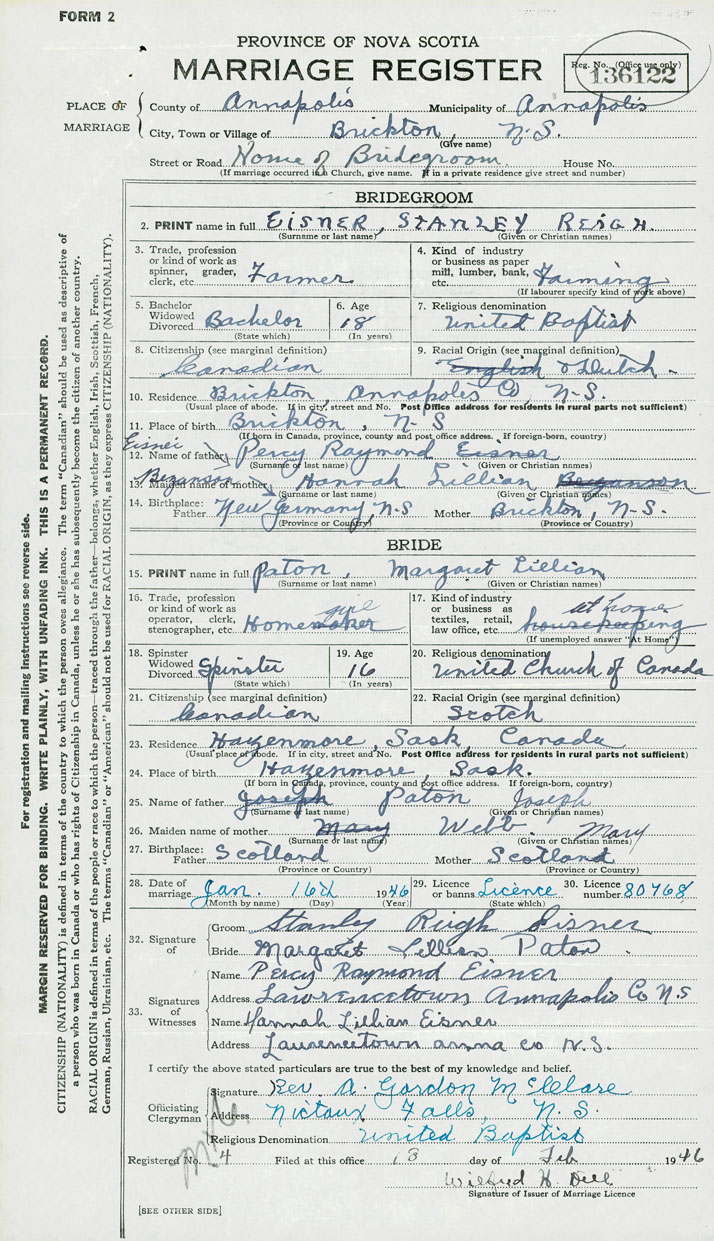 FORM 2
PROVINCE OF NOVA SCOTIA
MARRIAGE REGISTER
Reg. No. (Office use only)
136122
PLACE OF MARRIAGE
County of Annapolis Municipality of Annapolis
City, Town or Village of Brickton, N-S.
(Give name)
Street or Road Home of Bridegroom House No.
(If marriage occurred in a Church, give name. If in a private residence give street and number)
BRIDEGROOM
2. PRINT name in full EISNER, STANLEY REIGH.
(Surname or last name) (Given or Christian names)
3. Trade, profession or kind of work as spinner, grader, clerk, etc. Farmer
4. Kind of industry or business as paper mill, lumber, bank, etc. Farming
(If labourer specify kind of work above)
5. Bachelor Widowed Divorced Bachelor
(State which)
6. Age 18
(In years)
7. Religious denomination United Baptist
8. Citizenship (see marginal definition) Canadian
9. Racial Origin (see marginal definition) English & Dutch
10. Residence Brickton, Annapolis Co, N-S.
(Usual place of abode. If in city, street and No. Post Office address for residents in rural parts not sufficient)
11. Place of birth Brickton, N-S
(If born in Canada, province, county and post office address. If foreign-born, country)
12. Name of father Percy Raymond Eisner
(Surname or last name) (Given or Christian names)
13. Maiden name of mother Bezanson Hannah Lillian
(Surname or last name) (Given or Christian names)
14. Birthplace: Father New Germany, N-S Mother Brickton, N-S.
(Province or Country) (Province or Country)
BRIDE
15. PRINT name in full Paton, Margaret Lillian
(Surname or last name) (Given or Christian names)
16. Trade, profession or kind of work as operator, clerk, stenographer, etc. Homemaker
17. Kind of industry or business as textiles, retail, law office, etc. housekeeping at home
(If unemployed answer "At Home")
18. Spinster Widowed Divorced Spinster
(State which)
19. Age 16
(In years)
20. Religious denomination United Church of Canada
21. Citizenship (see marginal definition) Canadian
22. Racial Origin (see marginal definition) Scotch
23. Residence Hazenmore, Sask, Canada
(Usual place of abode. If in city, street and No. Post Office address for residents in rural parts not sufficient)
24. Place of birth Hazenmore, Sask.
(If born in Canada, province, county and post office address. If foreign-born, country)
25. Name of father Joseph Paton Joseph
(Surname or last name) (Given or Christian names)
26. Maiden name of mother Mary Webb Mary
(Surname or last name) (Given or Christian names)
27. Birthplace: Father Scotland Mother Scotland
(Province or Country) (Province or Country)
28. Date of marriage Jan. 16th 1946
(Month by name) (Day) (Year)
29. Licence or banns Licence
(State which)
30. Licence number 80768
32. Signature of
Groom Stanley Reigh Eisner
Bride Margaret Lillian Paton
33. Signatures of Witnesses
Name Percy Raymond Eisner
Address Lawrencetown Annapolis Co N.S
Name Hannah Lillian Eisner
Address Lawrencetown anna co N.S.
I certify the above stated particulars are true to the best of my knowledge and belief.
Officiating Clergyman
Signature Rev. A. Gordon McClare
Address Nictaux Falls, N.S.
Religious Denomination United Baptist
Registered No. 4 Filed at this office 13 day of Feb 1946
Wilfred H. Dell
Signature of Issuer of Marriage Licence
[SEE OTHER SIDE]
For registration and mailing instructions see reverse side.
MARGIN RESERVED FOR BINDING. WRITE PLAINLY, WITH UNFADING INK. THIS IS A PERMANENT RECORD.
CITIZENSHIP (NATIONALITY) is defined in terms of the country to which the person owes allegiance. The term "Canadian" should be used as descriptive of
a person who was born in Canada or who has rights of Citizenship in Canada, unless he or she has subsequently become the citizen of another country.
RACIAL ORIGIN is defined in terms of the people or race to which the person—traced through the father—belongs, whether English, Irish, Scottish, French,
German, Russian, Ukrainian, etc. The terms "Canadian" or "American" should not be used for RACIAL ORIGIN, as they express CITIZENSHIP (NATIONALITY).